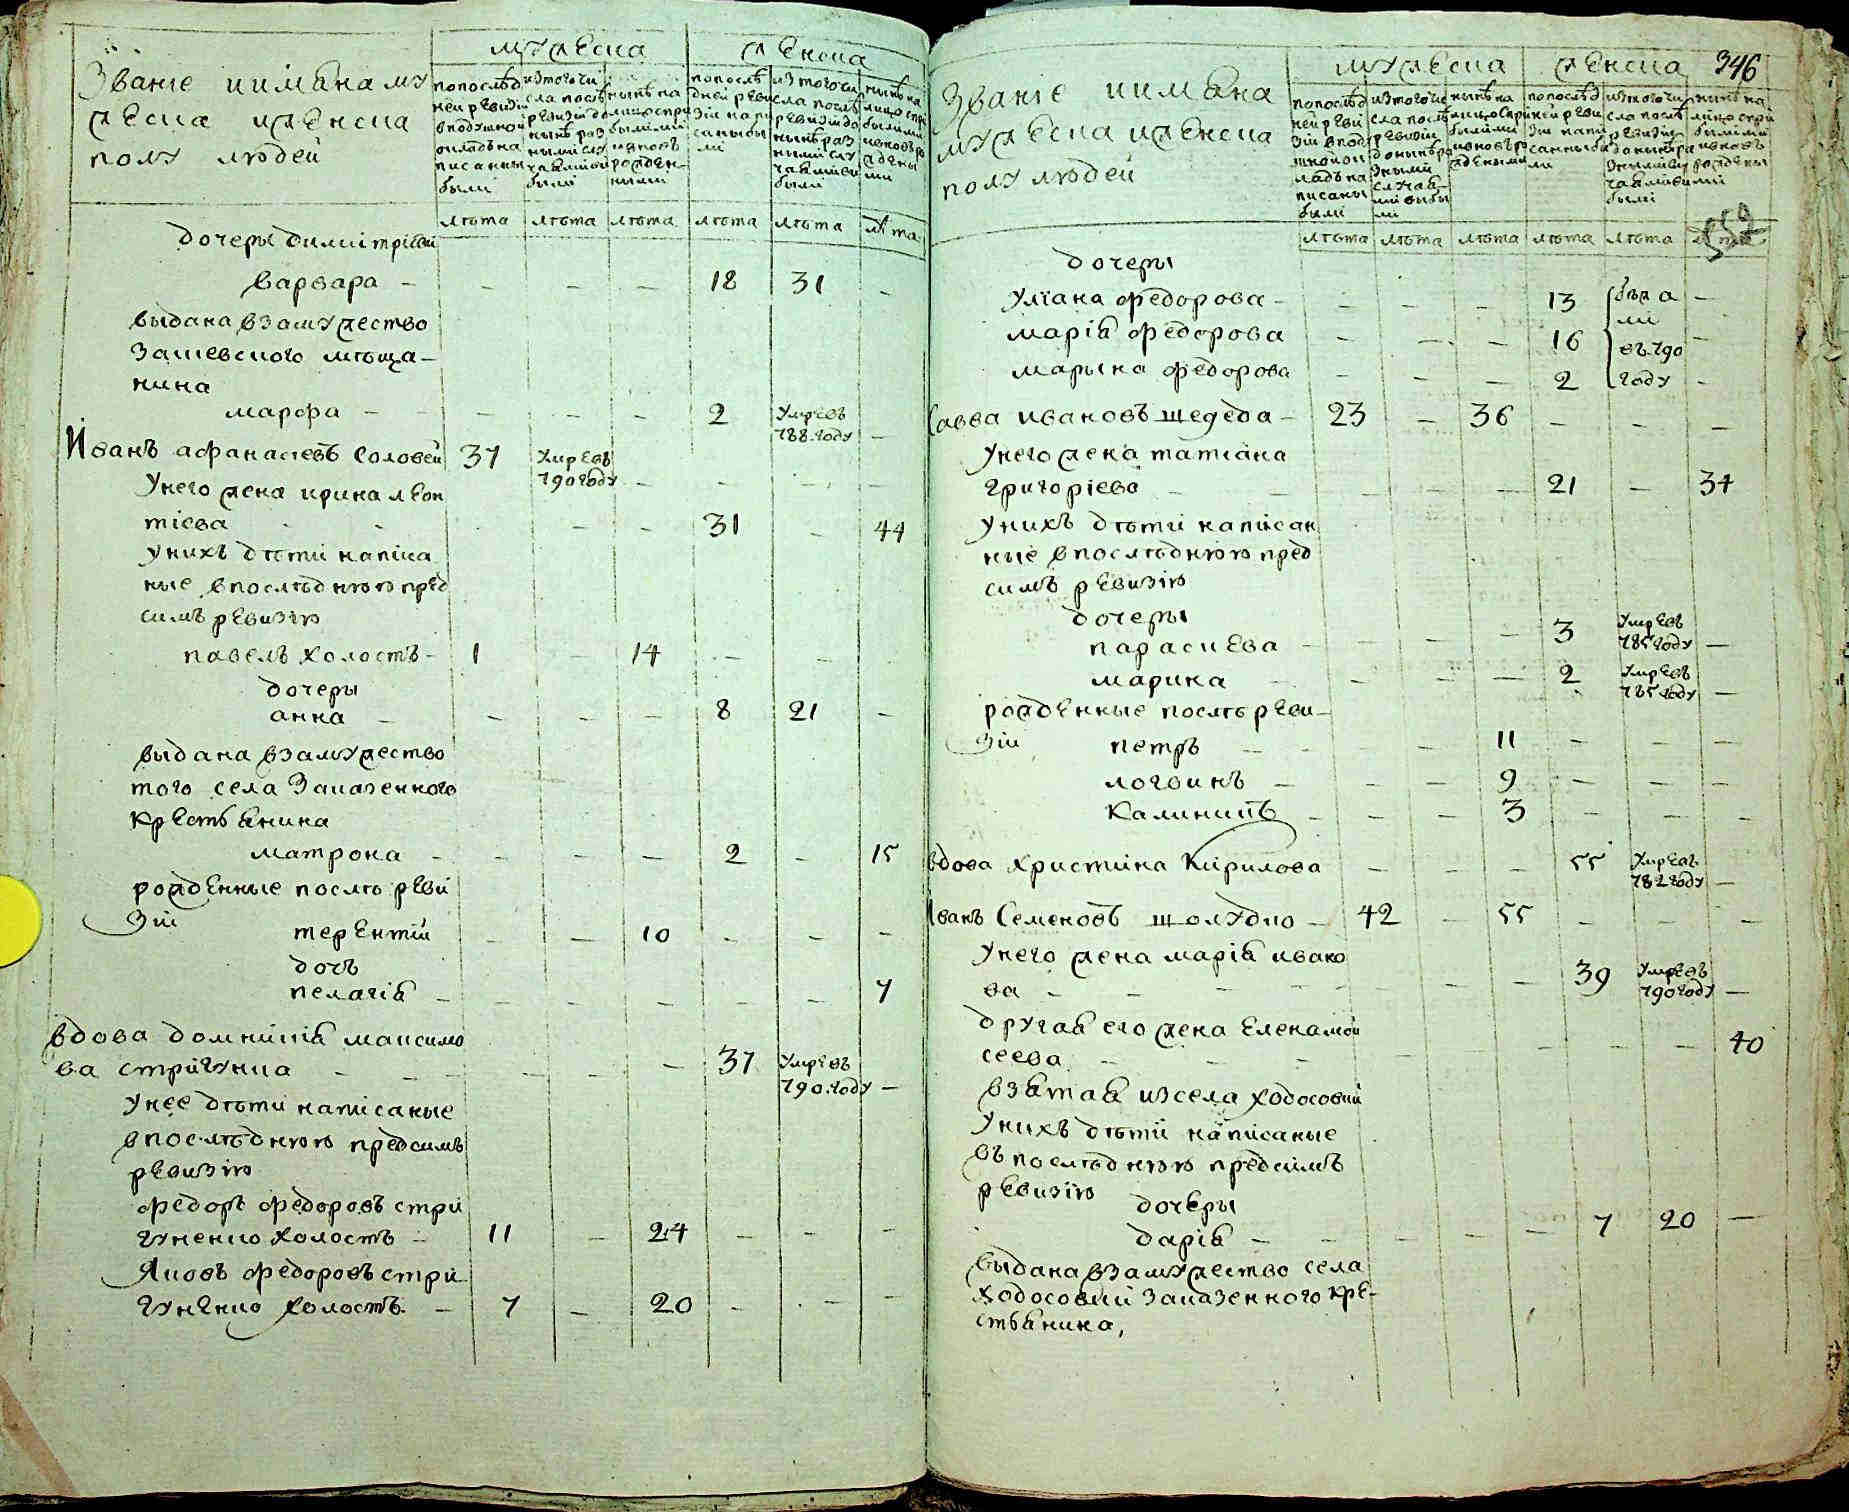 Званіе и имяна му
жеска и женска
полу людей
мужеска
женска
по послѣд
ней ревизіи
в подушной
окладъ на
писаны
были
из того чи
сла послѣ
ревизіи до
нынѣ раз
ными слу
чаями виб
были
нынѣ на
лицо спри
былими
и вновь
рожден
ными
по послѣ
дней реви
зіи напи
саны бы
ли
из того чи
сла послѣ
ревизіи до
нынѣ раз
ными слу
чаями ви
были
нынѣ на
лицо спри
былими
и вновь ро
ждены
ми
лѣта лѣта лѣта лѣта лѣта лѣта
дочеры Димитріеви
варвара - - - - 18 31 -
выдана взамужество
Зашевского мѣща-
нина
марфа - - - - 2 умре въ
788. году -
Иванъ афанасіевъ Соловей 37 умре въ
790 году - - - -
У него жена ирина леон
тіева - - - - 31 - 44
у нихъ дѣти напіса
ные в послѣднюю пред
симъ ревизію
павелъ холостъ - 1 - 14 - - -
дочеры
анна - - - - 8 21 -
выдана взамужество
того села Заказенного
крестьянина
матрона - - - - 2 - 15
рожденные послѣ реви
зіи
терентій - - 10 - - -
дочь
пелагія - - - - - - 7
вдова домникія максимо
ва стригунка - - - - 37 умре въ
790. году -
У нее дѣти написаные
в послѣднюю предсимъ
ревизію
федоръ федоровъ стри
гуненко холостъ - 11 - 24 - - -
Яковъ федоровъ стри
гуненко холостъ - 7 - 20 - - -
346
Званіе и имяна
мужеска и женска
полу людей
мужеска
женска
по послѣд
ней реви
зіи в под
шной ок
ладъ на
писаны
были
из того чи
сла послѣ
ревизіи
до нынѣ ра
зными
случая
ми виби
ли
нынѣ на
лицо спри
былими
и вновь ро
ждеными
по послѣд
ней реви
зіи напи
санны бы
ли
из того чи
сла послѣ
ревизіи
до нынѣ ра
зними слу
чаями ви
были
нынѣ на
лицо спри
былими
и вновь
рождены
ми
лѣта лѣта лѣта лѣта лѣта
дочеры
уліана федорова - - - - 13 бѣжа -
ли
марія федорова - - - 16 въ 790 -
марына федорова - - - 2 году -
Савва ивановъ шедеда - 23 - 36 - - -
У него жена татіана
григоріева - - - - 21 - 34
у нихъ дѣти написан
ные в послѣднюю пред
симъ ревизію
дочеры
параскева - - - - 3 умре въ
785 году -
марина - - - - 2 умре въ
785 году -
рожденные послѣ реви-
зіи петръ - - - 11 - - -
логвинъ - - - 9 - - -
Калиникъ - - - 3 - - -
вдова христина Кирилова - - - 55 умре въ
782 году -
Иванъ Семеновъ шолудко - 42 - 55 - - -
У него жена марія ивано
ва - - - - - 39 умре въ
790 году -
другая его жена Елена мой
сеева - - - - - - 40
взятая из села ходосовки
У нихъ дѣти написаные
въ послѣднюю предсимъ
ревизію
дочеры
дарія - - - - 7 20 -
выдана взамужество села
ходосовки заказенного кре-
стьянина,